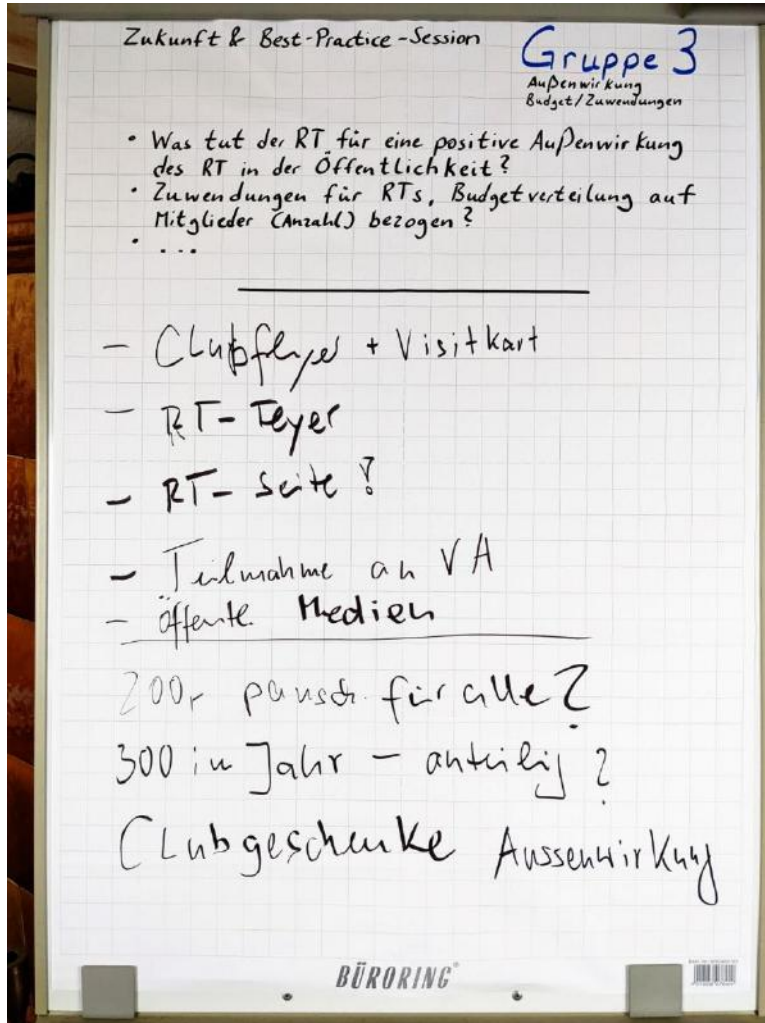 Zukunft & Best-Practice-Session
Gruppe 3
Außenwirkung
Budget/Zuwendungen
• Was tut der RT für eine positive Außenwirkung
des RT in der Öffentlichkeit?
• Zuwendungen für RTs, Budgetverteilung auf
Mitglieder (Anzahl) bezogen?
• ...
- Clubflyer + Visitkart
- RT-
- RT- Seite ?
- Teilnahme an VA
- öffentl. Medien
200,- pausch. für alle?
300 im Jahr - anteilig ?
Clubgeschenke Aussenwirkung
BÜRORING